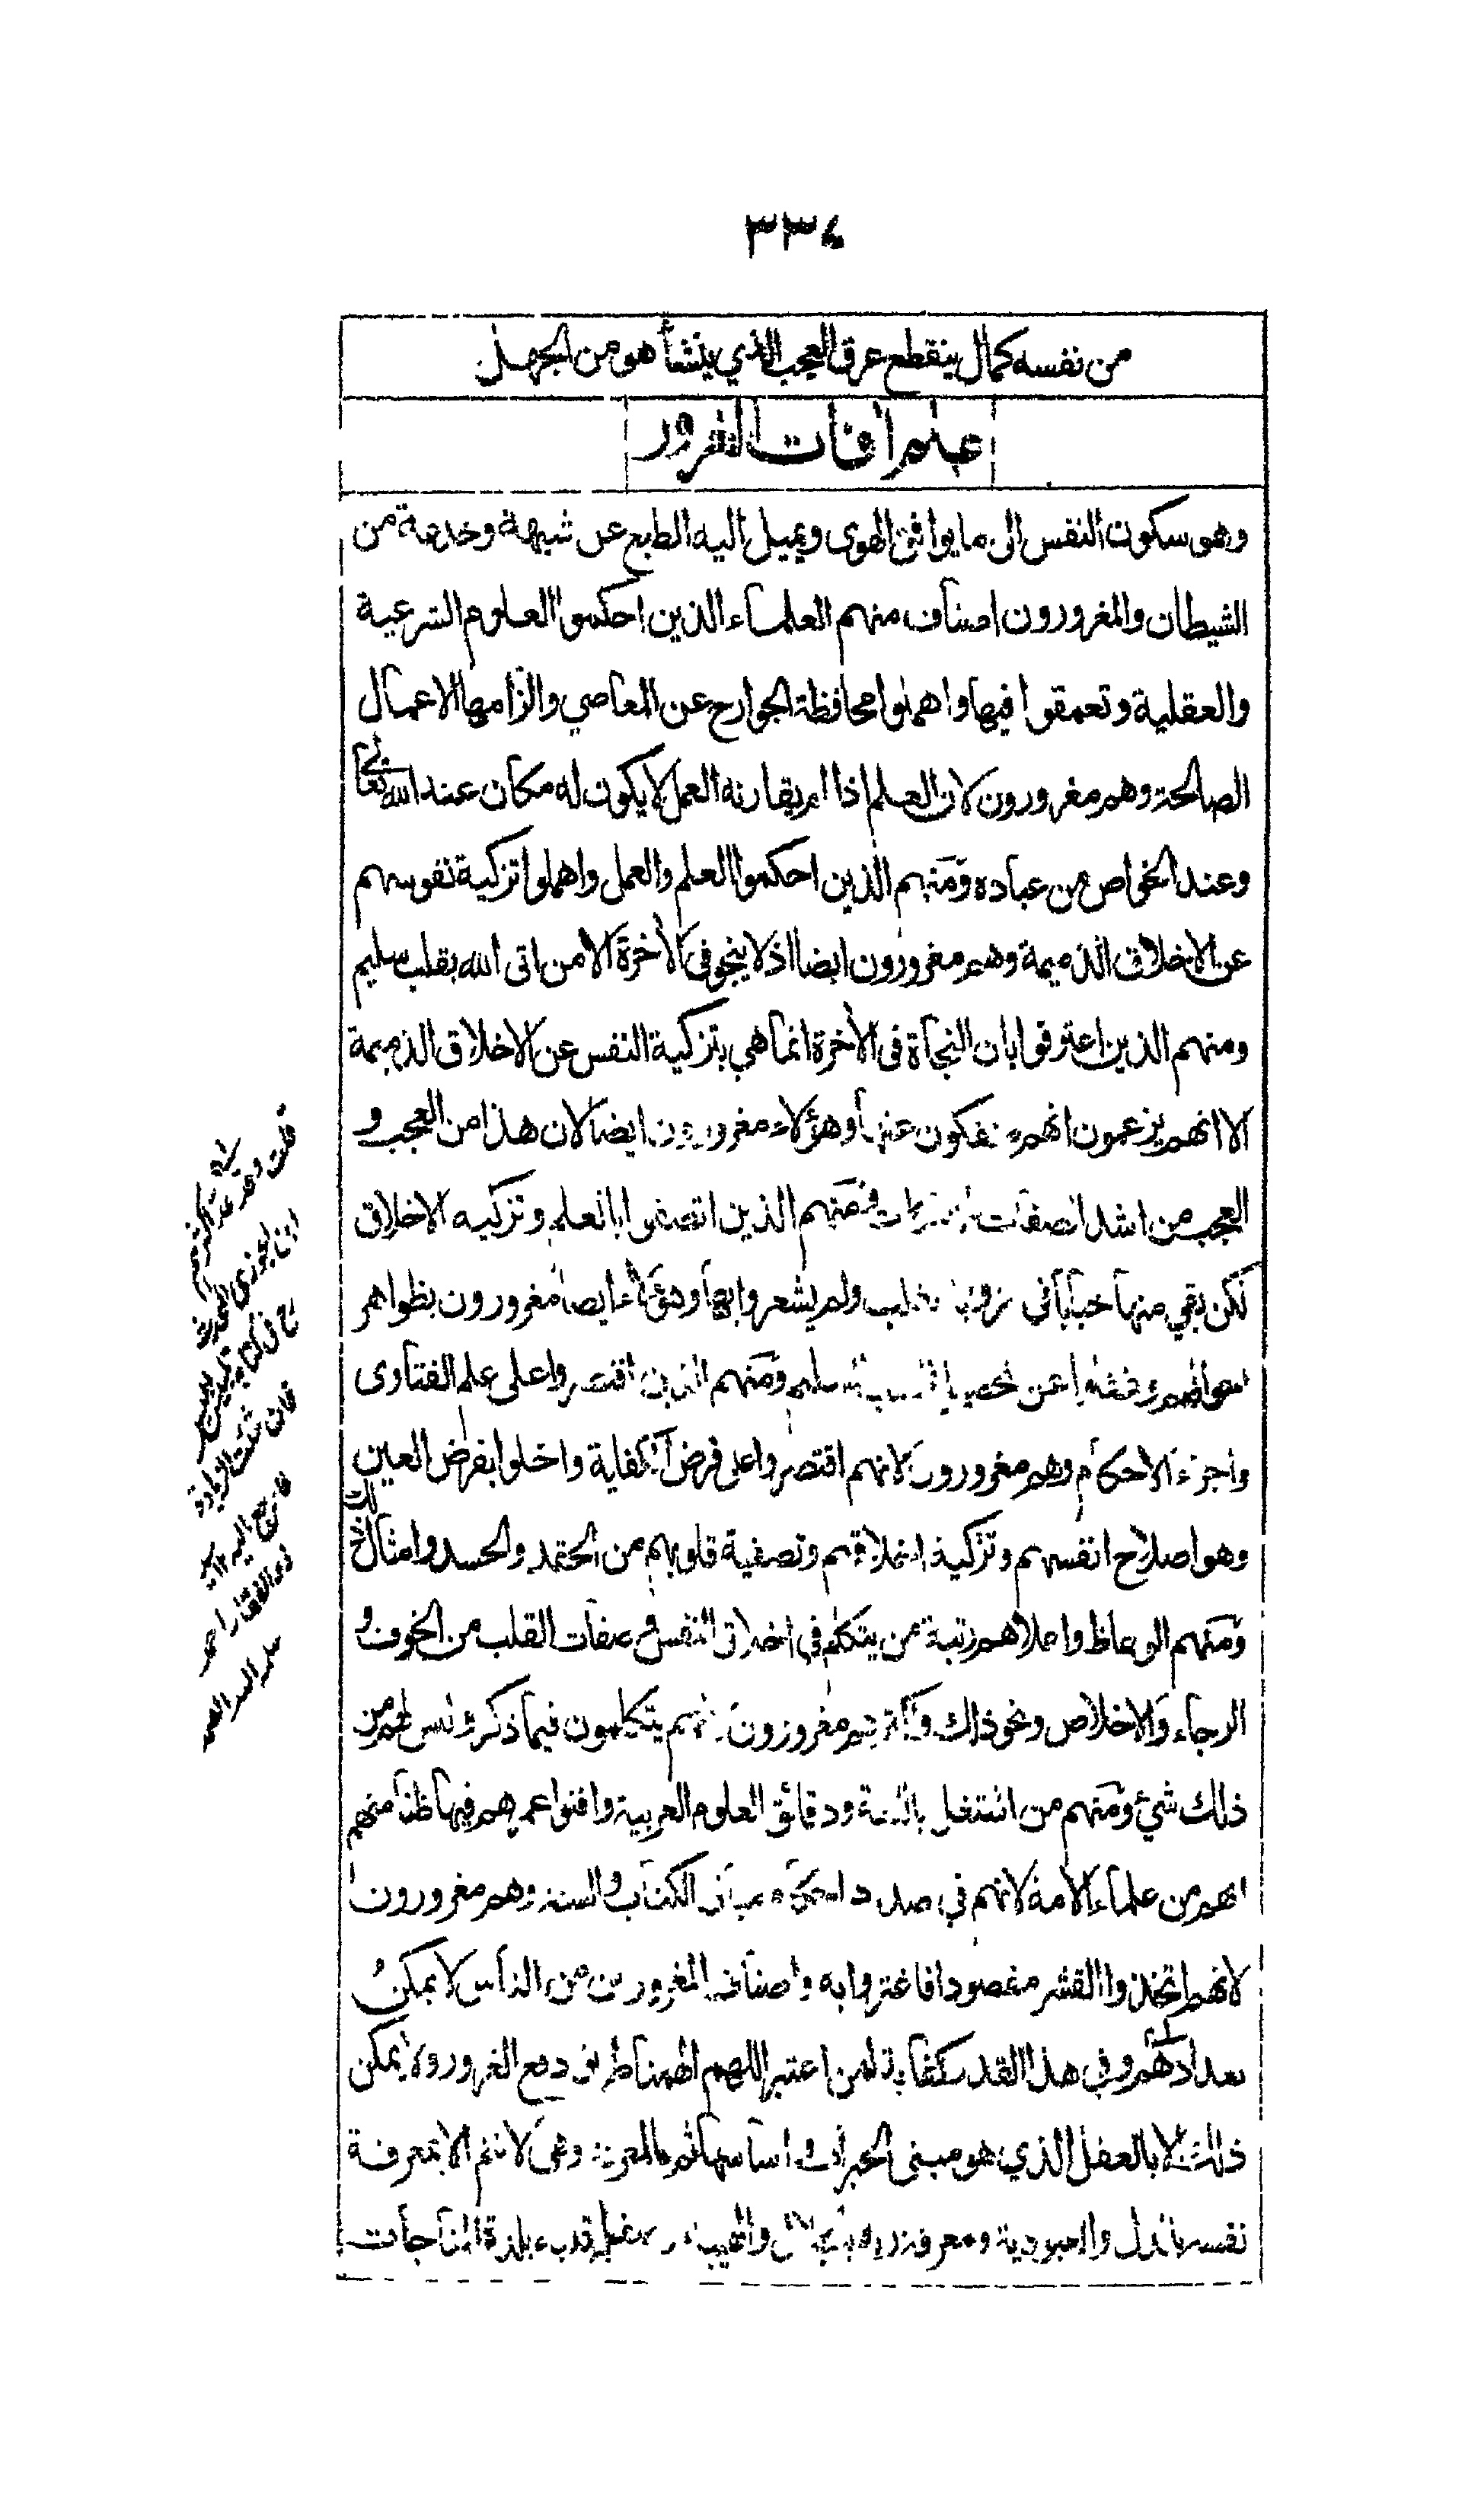 ٣٣٤
من نفسه كمال ينقطع عرق العجب الذي ينشأ هو من الجهل
علم افات الغرور
وهو سكون النفس الى ما يوافق الهوى ويميل اليه الطبع عن شبهة وخدعة من
الشيطان والمغرورون اصناف منهم العلماء الذين احكموا العلوم الشرعية
والعقلية وتعمقوا فيها واهملوا محافظة الجوارح عن المعاصي والزامها الاعمال
الصالحة وهم مغرورون لان العلم اذا لم يقارنه العمل لا يكون له مكان عند الله تعالى
وعند الخواص من عباده ومنهم الذين احكموا العلم والعمل واهملوا تزكية نفوسهم
عن الاخلاق الذميمة وهم مغرورون ايضا اذ لا ينجو فى الآخرة الا من اتى الله بقلب سليم
ومنهم الذين اعترفوا بان النجاة فى الآخرة انما هي بتزكية النفس عن الاخلاق الذميمة
الا انهم يزعمون انهم منفكون عنها وهؤلاء مغرورون ايضا لان هذا من العجب و
العجب من اشد الصفات ومنهم الذين اتصفوا بالعلم وتزكية الاخلاق
لكن بقي منها خبايا فى القلب ولم يشعروا بها وهؤلاء ايضا مغرورون بظواهر
احوالهم وغفلوا عن تحصيل القلب السليم ومنهم الذين اقتصروا على علم الفتاوى
واجراء الاحكام وهم مغرورون لانهم اقتصروا على فرض الكفاية واخلوا بفرض العين
وهو اصلاح انفسهم وتزكية اخلاقهم وتصفية قلوبهم من الحقد والحسد وامثال ذلك
ومنهم الوعاظ واعلاهم رتبة من يتكلم في اخلاق النفس وصفات القلب من الخوف و
الرجاء والاخلاص ونحو ذلك واكثرهم مغرورون لانهم يتكلمون فيما ذكر وليس لهم من
ذلك شيء ومنهم من اشتغل باللغة ودقائق العلوم العربية وافنوا عمرهم فيها ظنا منهم
انهم من علماء الامة لانهم في صدد الكتاب والسنة وهم مغرورون
لانهم اتخذوا القشر مقصودا فاغتروا به واصناف المغرورين من الناس لا يمكن
تعدادهم وفي هذا القدر كفاية لمن اعتبر اللهم الهمنا طريق دفع الغرور ولا يمكن
ذلك الا بالعقل الذي هو مبنى الخيرات واساسها ثم بالمعرفة وهى لا تتم الا بمعرفة
نفسه بالذل والعبودية ومعرفة ربه بالجلال والهيبة بلذة المناجات
قلت وقد
ابن الجوزي المحدث
فى كتابه تلبيس ابليس
فان شئت الزيادة
فارجع اليه